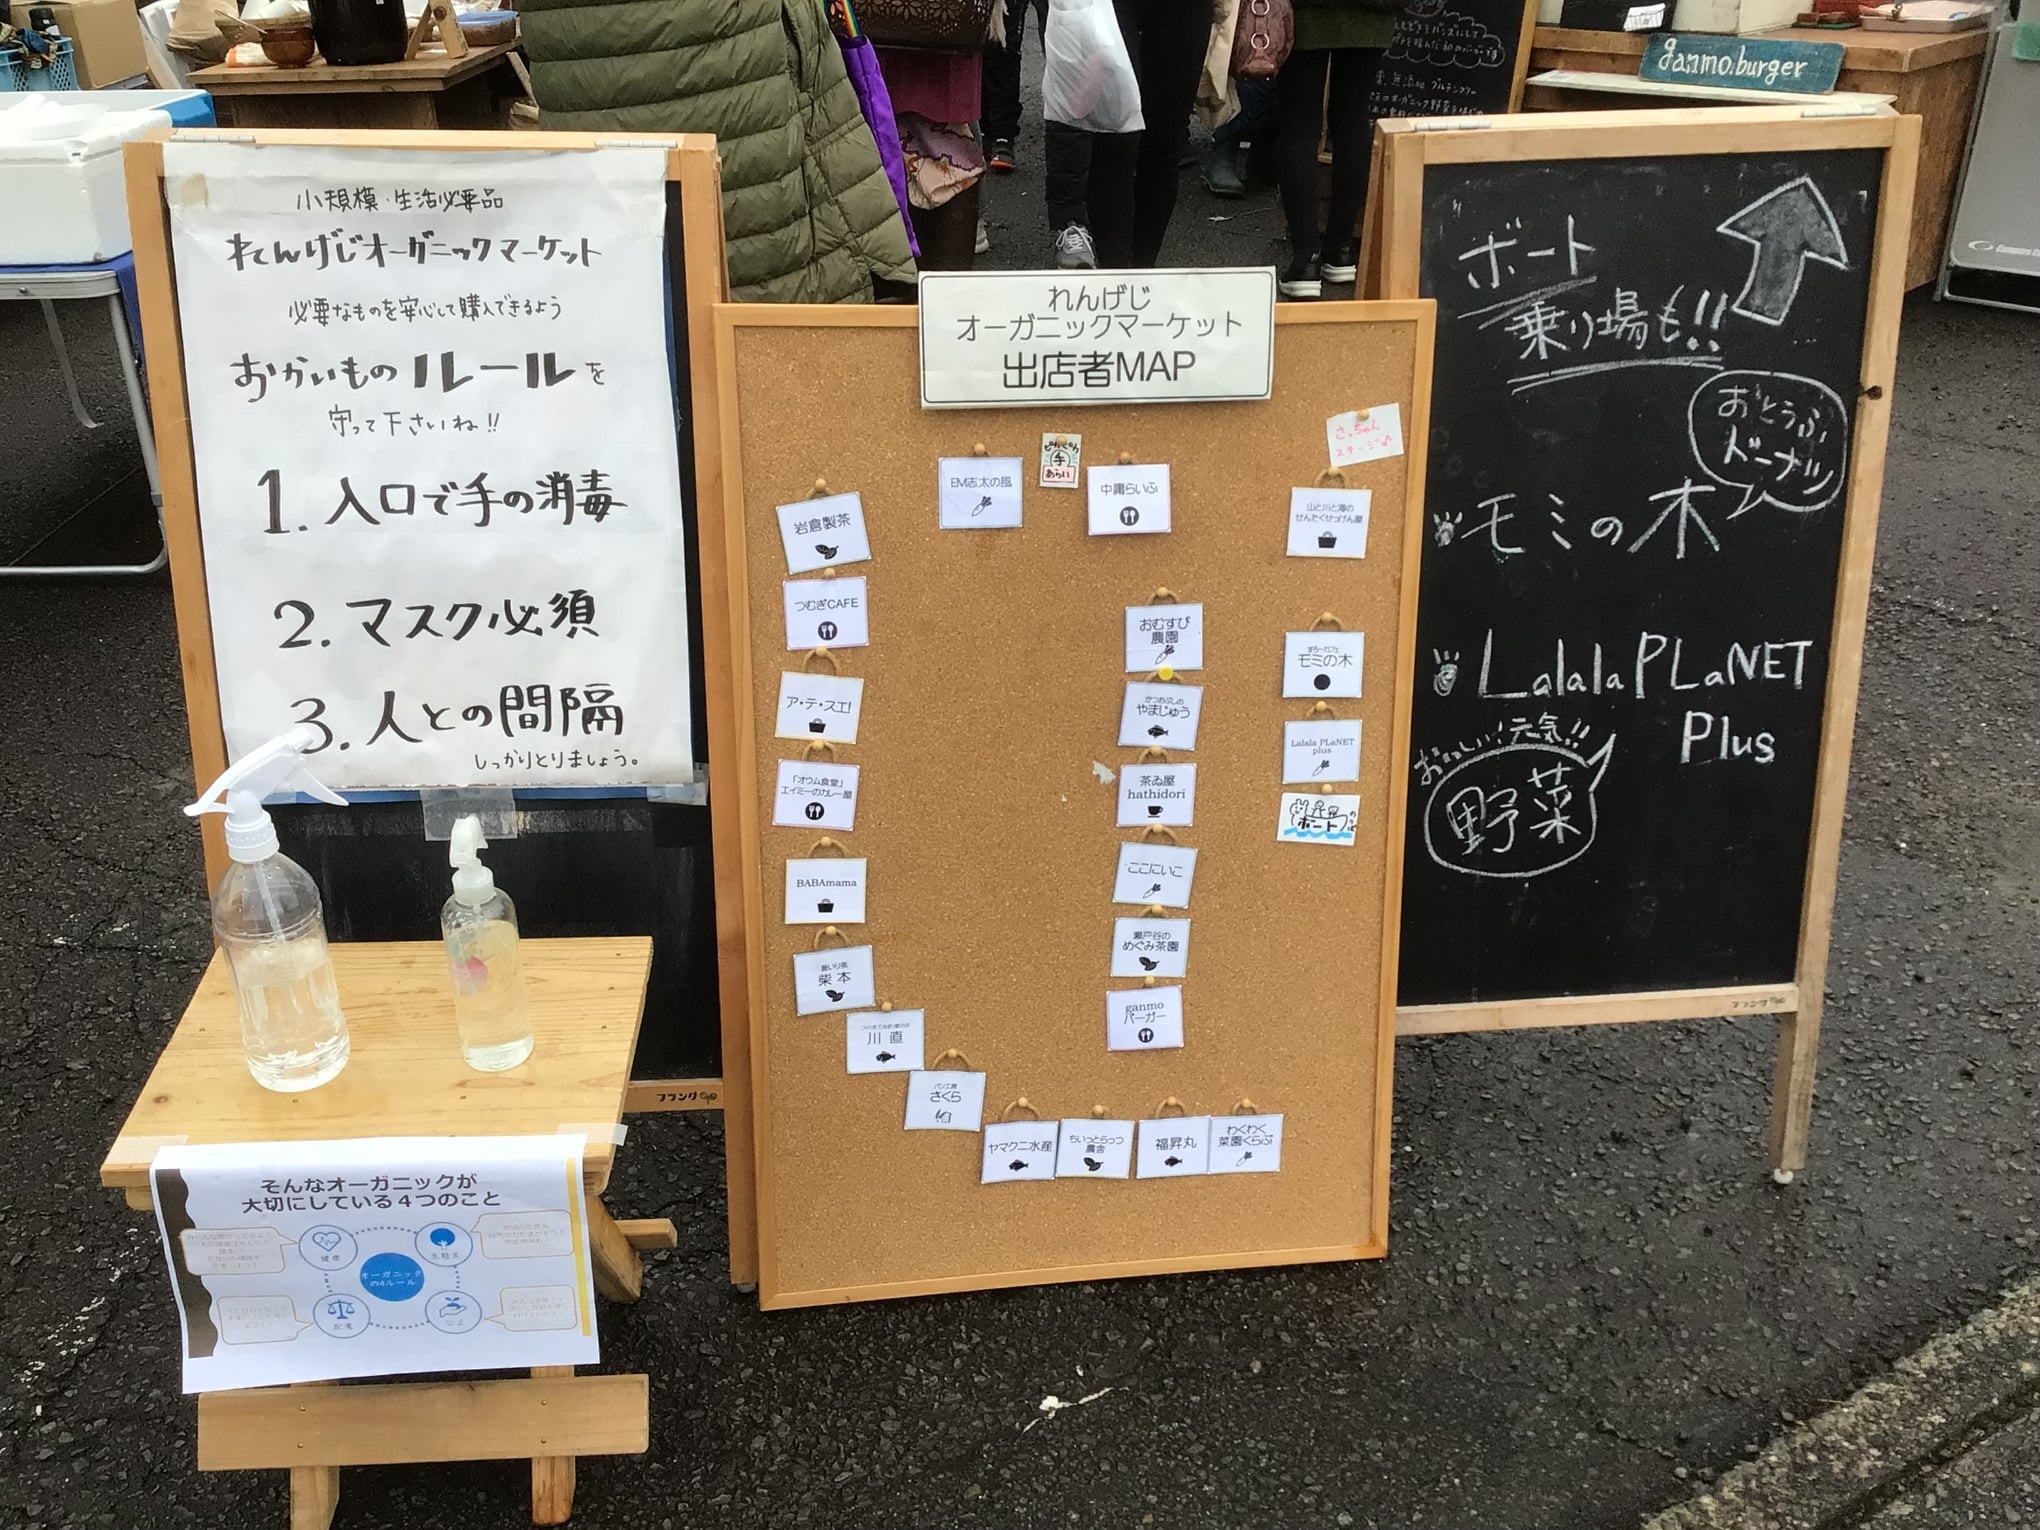 小規模・生活必要品
れんげじオーガニックマーケット
必要なものを安心して購入できるよう
おかいものルールを
守って下さいね!!
1. 入口で手の消毒
2. マスク必須
3. 人との間隔
しっかりとりましょう。
フランク
そんなオーガニックが
大切にしている4つのこと
健康
生態系
オーガニック
の4ルール
配慮
公正
れんげじ
オーガニックマーケット
出店者MAP
EM志太の風
手
あらい
中庸らいふ
さっちゃん
ステージ♪
岩倉製茶
山と川と海の
せんたくせっけん屋
つむぎCAFE
おむすび
農園
モミの木
ア・テ・スエ!
かつおぶしの
やまじゅう
Lalala PLaNET
plus
「オウム食堂」
エイミーのカレー屋
茶ゐ屋
hathidori
ボート
BABAmama
ここにいこ
釜いり茶
柴本
瀬戸谷の
めぐみ茶園
川直
ganmo
バーガー
パン工房
さくら
ヤマクニ水産
ちいっとらっつ
農舎
福昇丸
わくわく
菜園くらぶ
ganmo.burger
ボート
乗り場も!!
おとうふ
ドーナツ
モミの木
Lalala PLaNET
Plus
おいしい!元気!!
野菜
フランク